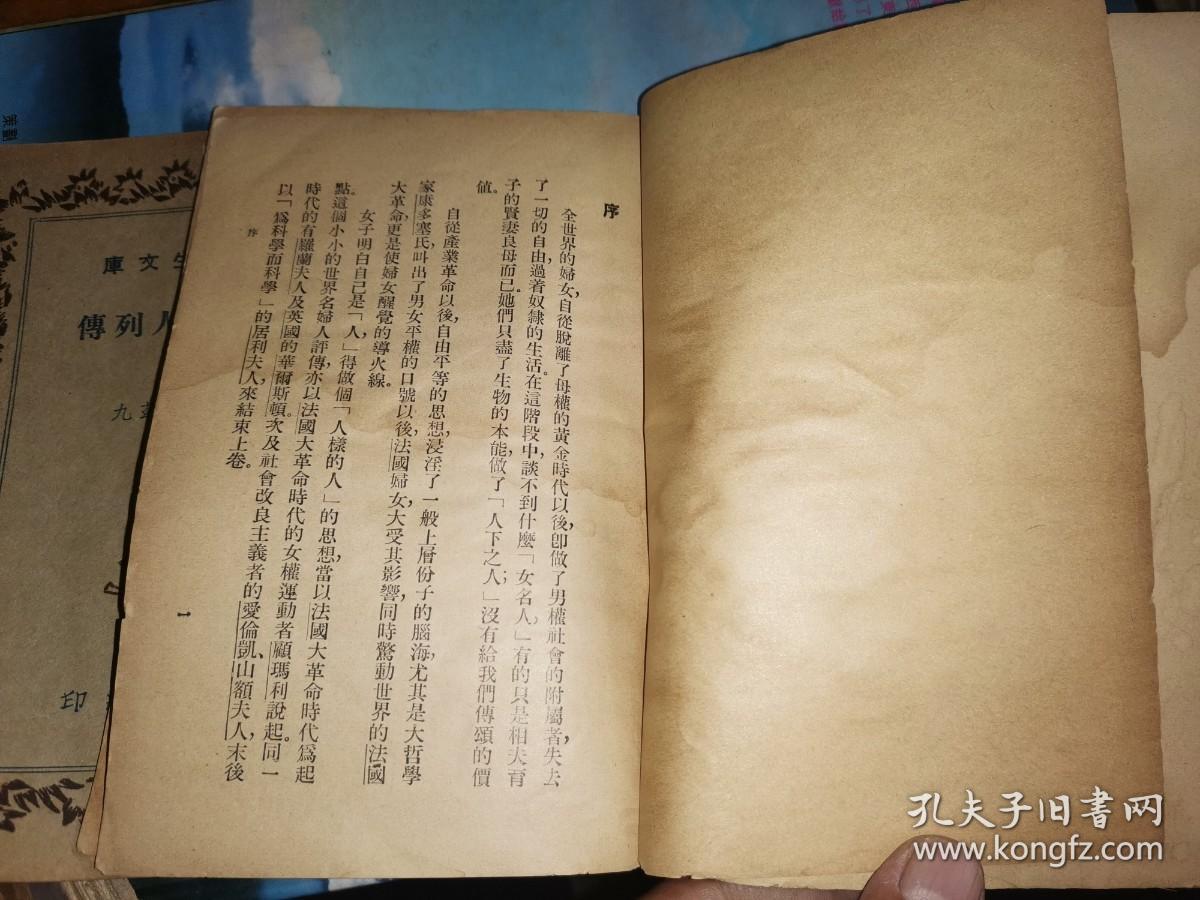 序
全世界的婦女自從脫離了母權的黃金時代以後,卽做了男權社會的附屬者,失去
了一切的自由,過着奴隸的生活在這階段中,談不到什麼「女名人」有的只是相夫育
子的賢妻良母而已她們只盡了生物的本能,做了「人下之人」;沒有給我們傳頌的價
値。
自從產業革命以後,自由平等的思想,浸淫了一般上層份子的腦海,尤其是大哲學
家康多塞氏叫出了男女平權的口號以後,法國婦女大受其影響,同時驚動世界的法國
大革命,更是使婦女醒覺的導火線。
女子明白自己是「人,」得做個「人樣的人」的思想,當以法國大革命時代爲起
點。這個小小的世界名婦人評傳,亦以法國大革命時代的女權運動者顧瑪利說起。同一
時代的有羅蘭夫人及英國的華爾斯頓。次及社會改良主義者的愛倫凱、山額夫人,末後
以「爲科學而科學」的居利夫人,來結束上卷。
序
一
文庫
人列傳
九
印
策劃
孔夫子旧书网
www.kongfz.com